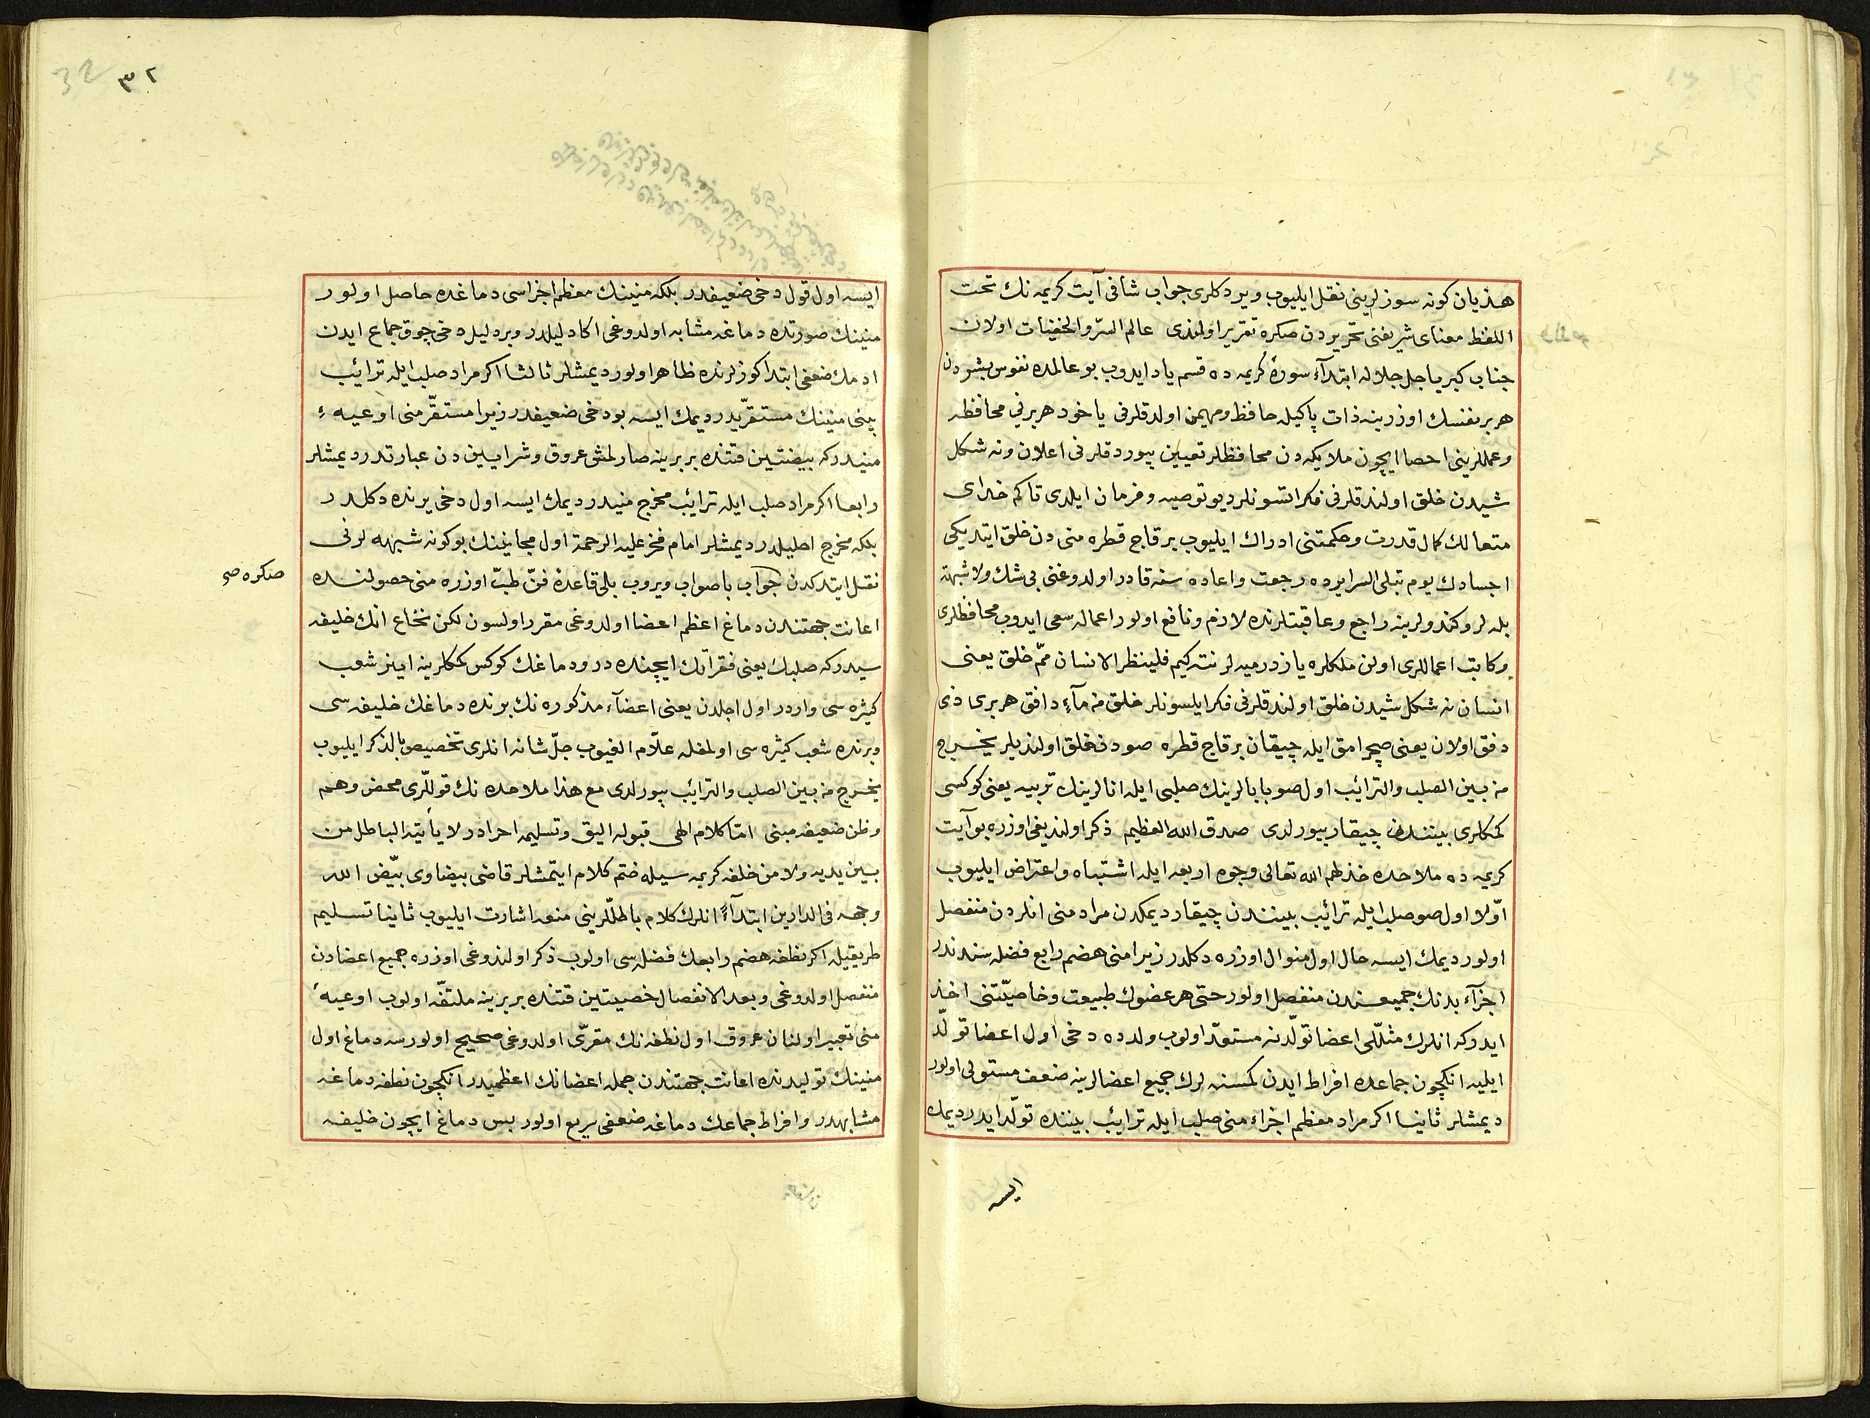 هذیان کونه سوزلرینی نقل ایلیوب ویردکلری جواب شافی آیت کریمه نك تحت
اللفظ معنای شریفنی تحریردن صکره تقریر اولندی عالم السرّ والخفیات اولان
جناب کبریا جل جلاله ابتدآء سورهٔ کریمه ده قسم یاد ایدوب بو عالمده نفوس بشردن
هر بر نفسك اوزرینه ذات پاکیله حافظ ومهیمن اولدقلرنی یاخود هر برنی محافظه
وعمللرینی احصا ایچون ملایکه دن محافظلر تعیین بیوردقلرنی اعلان ونه شکل
شیدن خلق اولندقلرنی فکر اتسونلر دیو توصیه وفرمان ایلدی تاکم خدای
متعالك کمال قدرت وحکمتنی ادراك ایلیوب بر قاچ قطره منی دن خلق ایتدیکی
اجسادك یوم تبلی السرایرده رجعت واعاده سنه قادر اولدوغنی بی شك ولا شبهة
بله لر وکندولرینه راجع وعاقبتلرنده لازم ونافع اولور اعماله سعی ایدوب محافظلری
وکاتب اعماللری اولن ملکلره یازدرمیه لر نته کیم فلینظر الانسان ممّ خلق یعنی
انسان نه شکل شیدن خلق اولندقلرنی فکر ایلسونلر خلق من مآء دافق هر بری ذی
دفق اولان یعنی صچرامق ایله چیقان بر قاچ قطره صودن خلق اولندیلر یخرج
من بین الصلب والترائب اول صو بابالرینك صلبی ایله انالرینك تریبه یعنی کوکسی
کمکلری بیننده​ن چیقار بیورلدی صدق الله العظیم ذکر اولندیغی اوزره بو آیت
کریمه ده ملاحده خذلهم الله تعالی وجوه اربعه ایله اشتباه واعتراض ایلیوب
اوّلا اول صو صلب ایله ترائب بیننده​ن چیقار دیمکدن مراد منی انلردن منفصل
اولور دیمك ایسه حال اول منوال اوزره دکلدر زیرا منی هضم رابع فضله سندندر
اجزآء بدنك جمیعندن منفصل اولور حتی هر عضوك طبیعت وخاصیّتنی اخذ
ایدر که انلرك مثللی اعضا تولّدنه مستعدّ اولوب ولدده دخی اول اعضا تولّد
ایلیه انکچون جماعده افراط ایدن کمسنه لرك جمیع اعضالرینه ضعف مستولی اولور
دیمشلر ثانیا اکر مراد معظم اجزاء منی صلب ایله ترائب بیننده تولّد ایدر دیمك
ایسه
۳۲
32
ایسه اول قول دخی ضعیفدر بلکه منینك معظم اجزاسی دماغده حاصل اولور
منینك صورتده دماغه مشابه اولدوغی اکا دلیلدر وبر دلیل دخی چوق جماع ایدن
ادمك ضعفی ابتدا کوزلرنده ظاهر اولور دیمشلر ثالثا اکر مراد صلب ایله ترائب
بینی منینك مستقریدر دیمك ایسه بو دخی ضعیفدر زیرا مستقرّ منی اوعیهء
منیدر که بیضتین قتنده بر برینه صارلمش عروق وشرایین دن عبارتدر دیمشلر
رابعا اکر مراد صلب ایله ترائب مخرج منیدر دیمك ایسه اول دخی یرنده دکلدر
بلکه مخرج احلیلدر دیمشلر امام فخر علیه الرحمة اول مجانینك بو کونه شبهه لرنی
نقل ایتدکدن جواب با صواب ویروب بلی قاعدهٔ فنّ طبّ اوزره منی حصولنده
صکره صح
اعانت جهتندن دماغ اعظم اعضا اولدوغی مقرر اولسون لکن نخاع انك خلیفه
سیدر که صلبك یعنی فقرآتك ایچنده در ودماغك کوکس کمکلرینه اینر شعب
کثیره سی واردر اول اجلدن یعنی اعضآء مذکوره نك برنده دماغك خلیفه سی
وبرنده شعب کثیره سی اولمغله علّام الغیوب جلّ شانه انلری تخصیص بالذکر ایلیوب
یخرج من بین الصلب والترائب بیورلدی مع هذا ملاحده نك قوللّری محض وهم
وظن ضعیفه مبنی امّا کلام الهی قبوله الیق وتسلیمه احرادر لا یأتیه الباطل من
بین یدیه ولا من خلفه کریمه سیله ختم کلام ایتمشلر قاضی بیضاوی بیّض الله
وجهه فی الدارین ابتدآءً انلرك کلام باطللّرینی منعه اشارت ایلیوب ثانیا تسلیم
طریقیله اکر نطفه هضم رابعك فضله سی اولوب ذکر اولندوغی اوزره جمیع اعضادن
منفصل اولدوغی وبعد الانفصال خصیتین قتنده بر برینه ملتفّه اولوب اوعیهٔ
منی تعبیر اولنان عروق اول نطفه نك مقرّی اولدوغی صحیح اولورسه دماغ اول
منینك تولیدنده اعانت جهتندن جمله اعضانك اعظمیدر انکچون نطفه دماغه
مشابهدر وافراط جماعك دماغه ضعفی سریع اولور بس دماغ ایچون خلیفه